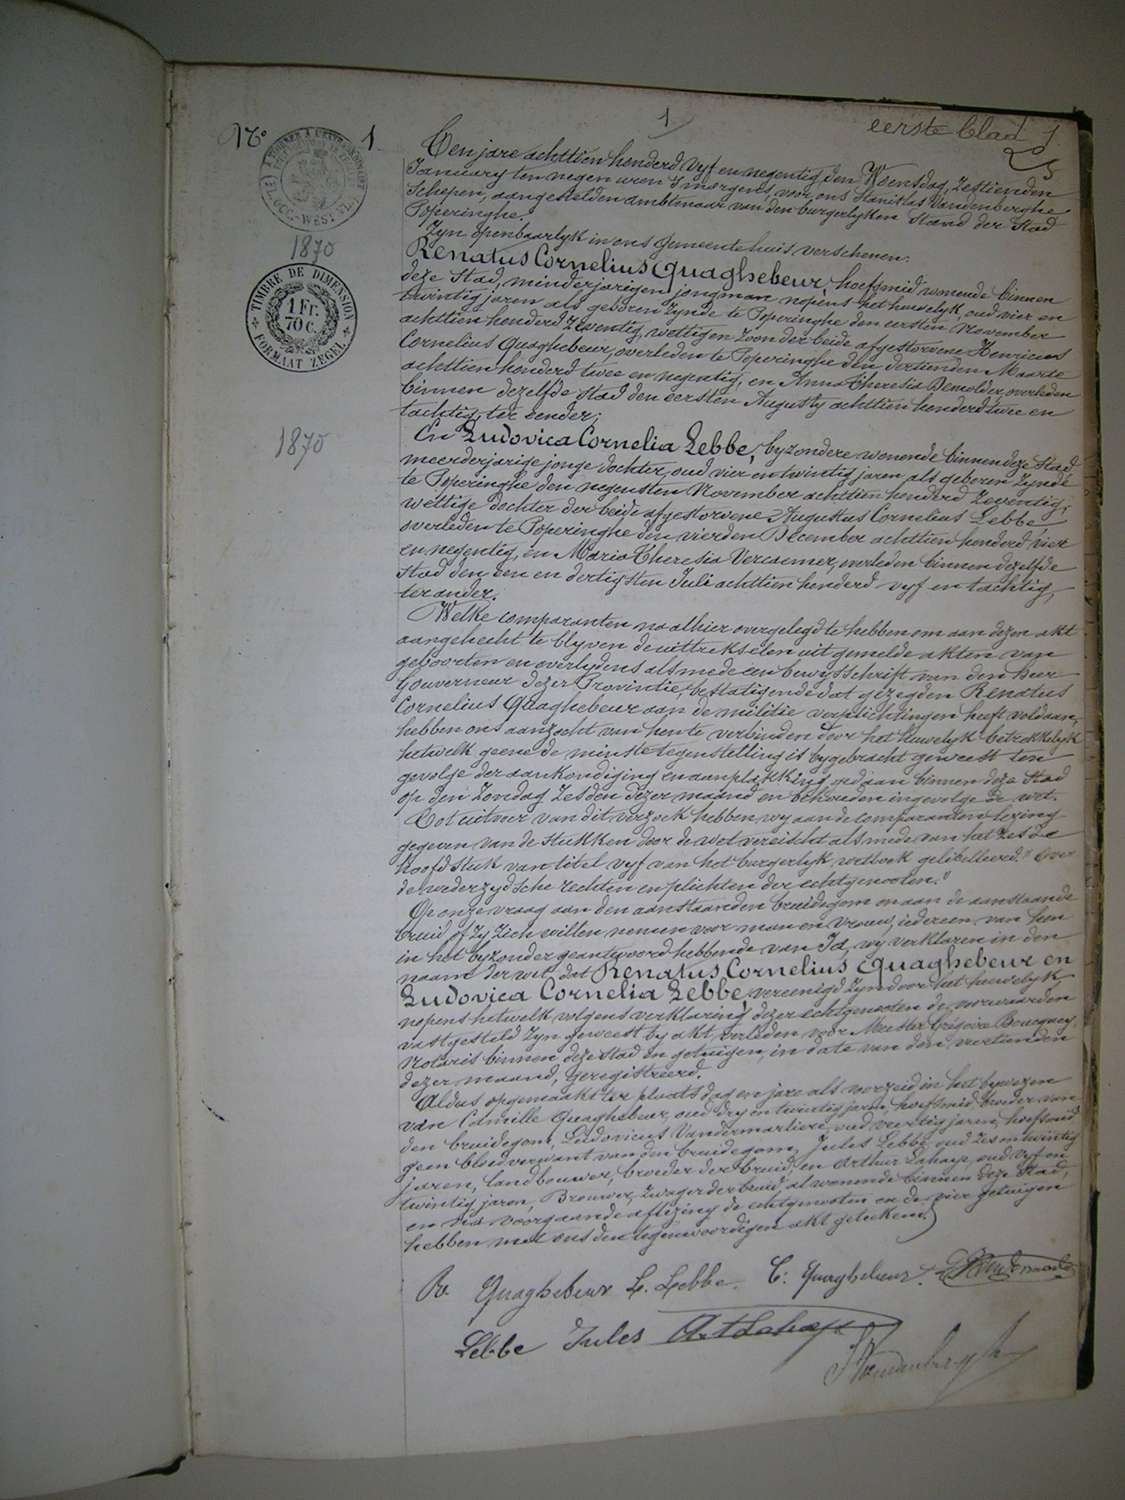 1
eerste blad 1
N° 1.
TIMBRE DE DIMENSION
1 Fr. 70 C.
FORMAAT ZEGEL
1870
1870
Ten jare achttien honderd vyf en negentig, den Woensdag, zestienden
January ten negen uren 's morgens, voor ons Stanislas Vandenberghe
Schepen, aangestelden ambtenaar van den burgerlyken stand der Stad
Poperinghe.
Zyn openbaarlyk in ons gemeentehuis verschenen:
Renatus Cornelius Quaghebeur, hoefsmid wonende binnen
deze Stad, minderjarigen jongman nopens het huwelyk, oud vier en
twintig jaren als geboren zynde te Poperinghe den eersten November
achttien honderd zeventig, wettigen zoon der beide afgestorvene Henricus
Cornelius Quaghebeur, overleden te Poperinghe den dertienden Maarte
achttien honderd twee en negentig, en Anna Theresia Demolder, overleden
binnen dezelfde stad den eersten Augusty achttien honderd twee en
tachtig, ter eender;
En Ludovica Cornelia Lebbe, byzondere wonende binnen deze Stad
meerderjarige jonge dochter, oud vier en twintig jaren als geboren zynde
te Poperinghe den negensten November achttien honderd zeventig,
wettige dochter der beide afgestorvene Augustus Cornelius Lebbe
overleden te Poperinghe den vierden December achttien honderd vier
en negentig, en Maria Theresia Vercaemer, overleden binnen dezelfde
stad den een en dertigsten Juli achttien honderd vyf en tachtig,
ter ander.
Welke comparanten na alhier overgelegd te hebben om aan dezen akt
aangehecht te blyven de uittrekselen uit gemelde akten van
geboorten en overlydens alsmede een bewysschrift van den heer
Gouverneur dezer Provintie, bestatigende dat gezegden Renatus
Cornelius Quaghebeur aan de militie verplichtingen heeft voldaan,
hebben ons aanzocht van hen te verbinden door het huwelyk betrekkelyk
hetwelk geene de minste tegenstelling is bygebracht geweest ten
gevolge der aankondiging en aanplakking gedaan binnen deze Stad
op den Zondag zesden dezer maand en behouden ingevolge de wet.
Tot uitvoer van dit verzoek hebben wy aan de comparanten lezing
gegeven van de stukken door de wet vereischt alsmede van het zesde
hoofdstuk van titel vyf van het burgerlyk wetboek gelibelleerd "Over
de wederzydsche rechten en plichten der echtgenooten."
Op onze vraag aan den aanstaanden bruidegom en aan de aanstaande
bruid of zy zich willen nemen voor man en vrouw, iedereen van hen
in het byzonder geantwoord hebbende van Ja, wy verklaren in den
naam der wet, dat Renatus Cornelius Quaghebeur en
Ludovica Cornelia Lebbe, vereenigd zyn door het huwelyk
nopens hetwelk volgens verklaring dezer echtgenooten de voorwaarden
vastgesteld zyn geweest by akt verleden voor Meester Grégoire
Notaris binnen deze stad en getuigen in date van den veertienden
dezer maand, geregistreerd.
Aldus opgemaakt ter plaats dag en jare als voorzeid in het bywezen
van Camille Quaghebeur, oud dry en twintig jaren, hoefsmid, broeder van
den bruidegom, Ludovicus Vandermarliere, oud veertig jaren, hoefsmid
geen bloedverwant van den bruidegom, Jules Lebbe oud zes en twintig
jaren, landbouwer, broeder der bruid, en Arthur Lahaye, oud vyf en
twintig jaren, Brouwer, zwager der bruid, al wonende binnen deze Stad,
en na voorgaande aflezing de echtgenooten en de vier getuigen
hebben met ons den tegenwoordigen akt geteekend.
R. Quaghebeur L. Lebbe. C. Quaghebeur.
Lebbe Jules Art Lahaye
Vandenberghe